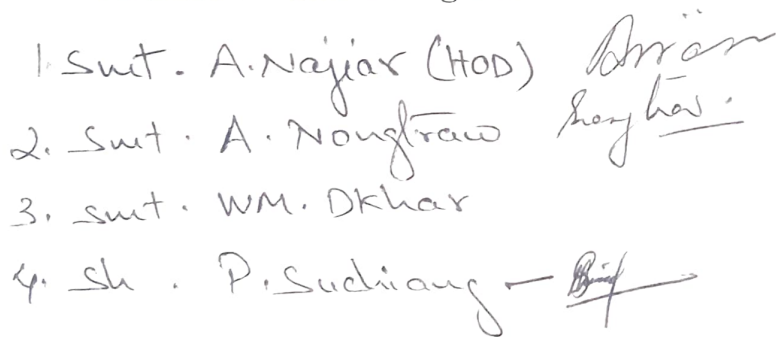 1. Smt. A. Najiar (HOD)
2. Smt. A. Nongtraw
3. Smt. WM. Dkhar
4. Sh. P. Suchiang -